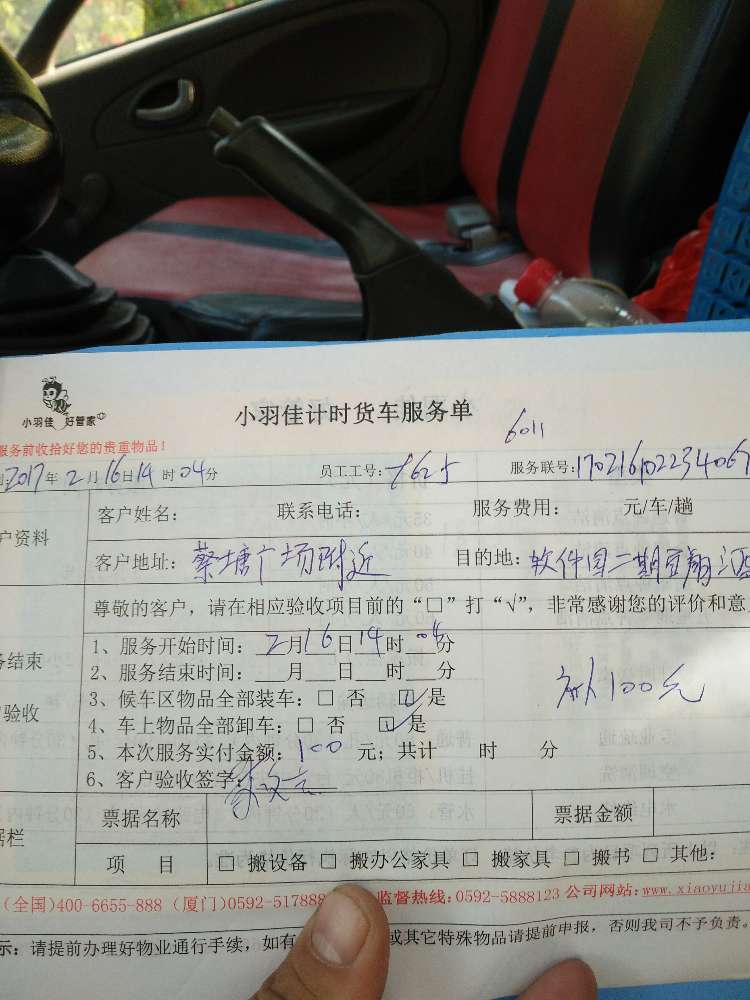 小羽佳 好管家
小羽佳计时货车服务单
6011
服务前收拾好您的贵重物品！
2017年2月16日14时04分 员工工号： 服务联号：17021610223406
户资料 客户姓名： 联系电话： 服务费用： 元/车/趟
客户地址：蔡塘广场附近 目的地：软件园二期
尊敬的客户，请在相应验收项目前的“□”打“√”，非常感谢您的评价和意
务结束
验收
1、服务开始时间：2月16日14时04分
2、服务结束时间：___月___日___时___分
3、候车区物品全部装车：□ 否 ☑ 是
4、车上物品全部卸车：□ 否 ☑ 是
100元
5、本次服务实付金额：100 元；共计 时 分
6、客户验收签字：
据栏 票据名称 票据金额
项 目 □ 搬设备 □ 搬办公家具 □ 搬家具 □ 搬书 □ 其他：
(全国)400-6655-888 (厦门)0592-517888 监督热线：0592-5888123 公司网站：www.xiaoyujia
示：请提前办理好物业通行手续，如有 或其它特殊物品请提前申报，否则我司不予负责。